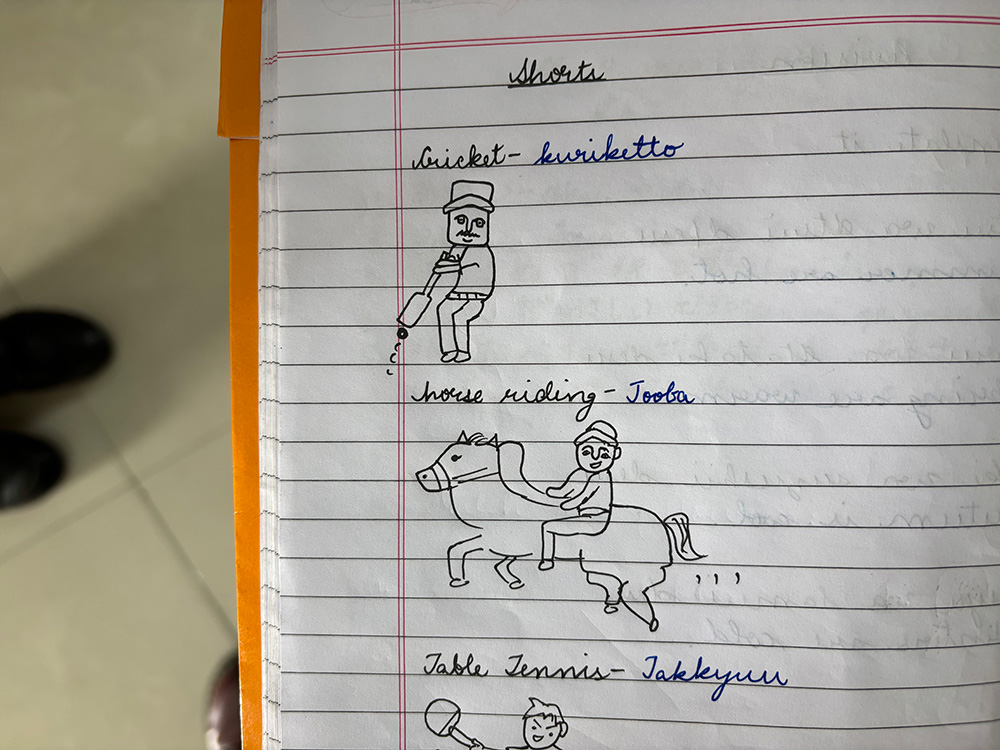 Shorts
Cricket - kuriketto
horse riding - Jooba
Table Tennis - Takkyuu